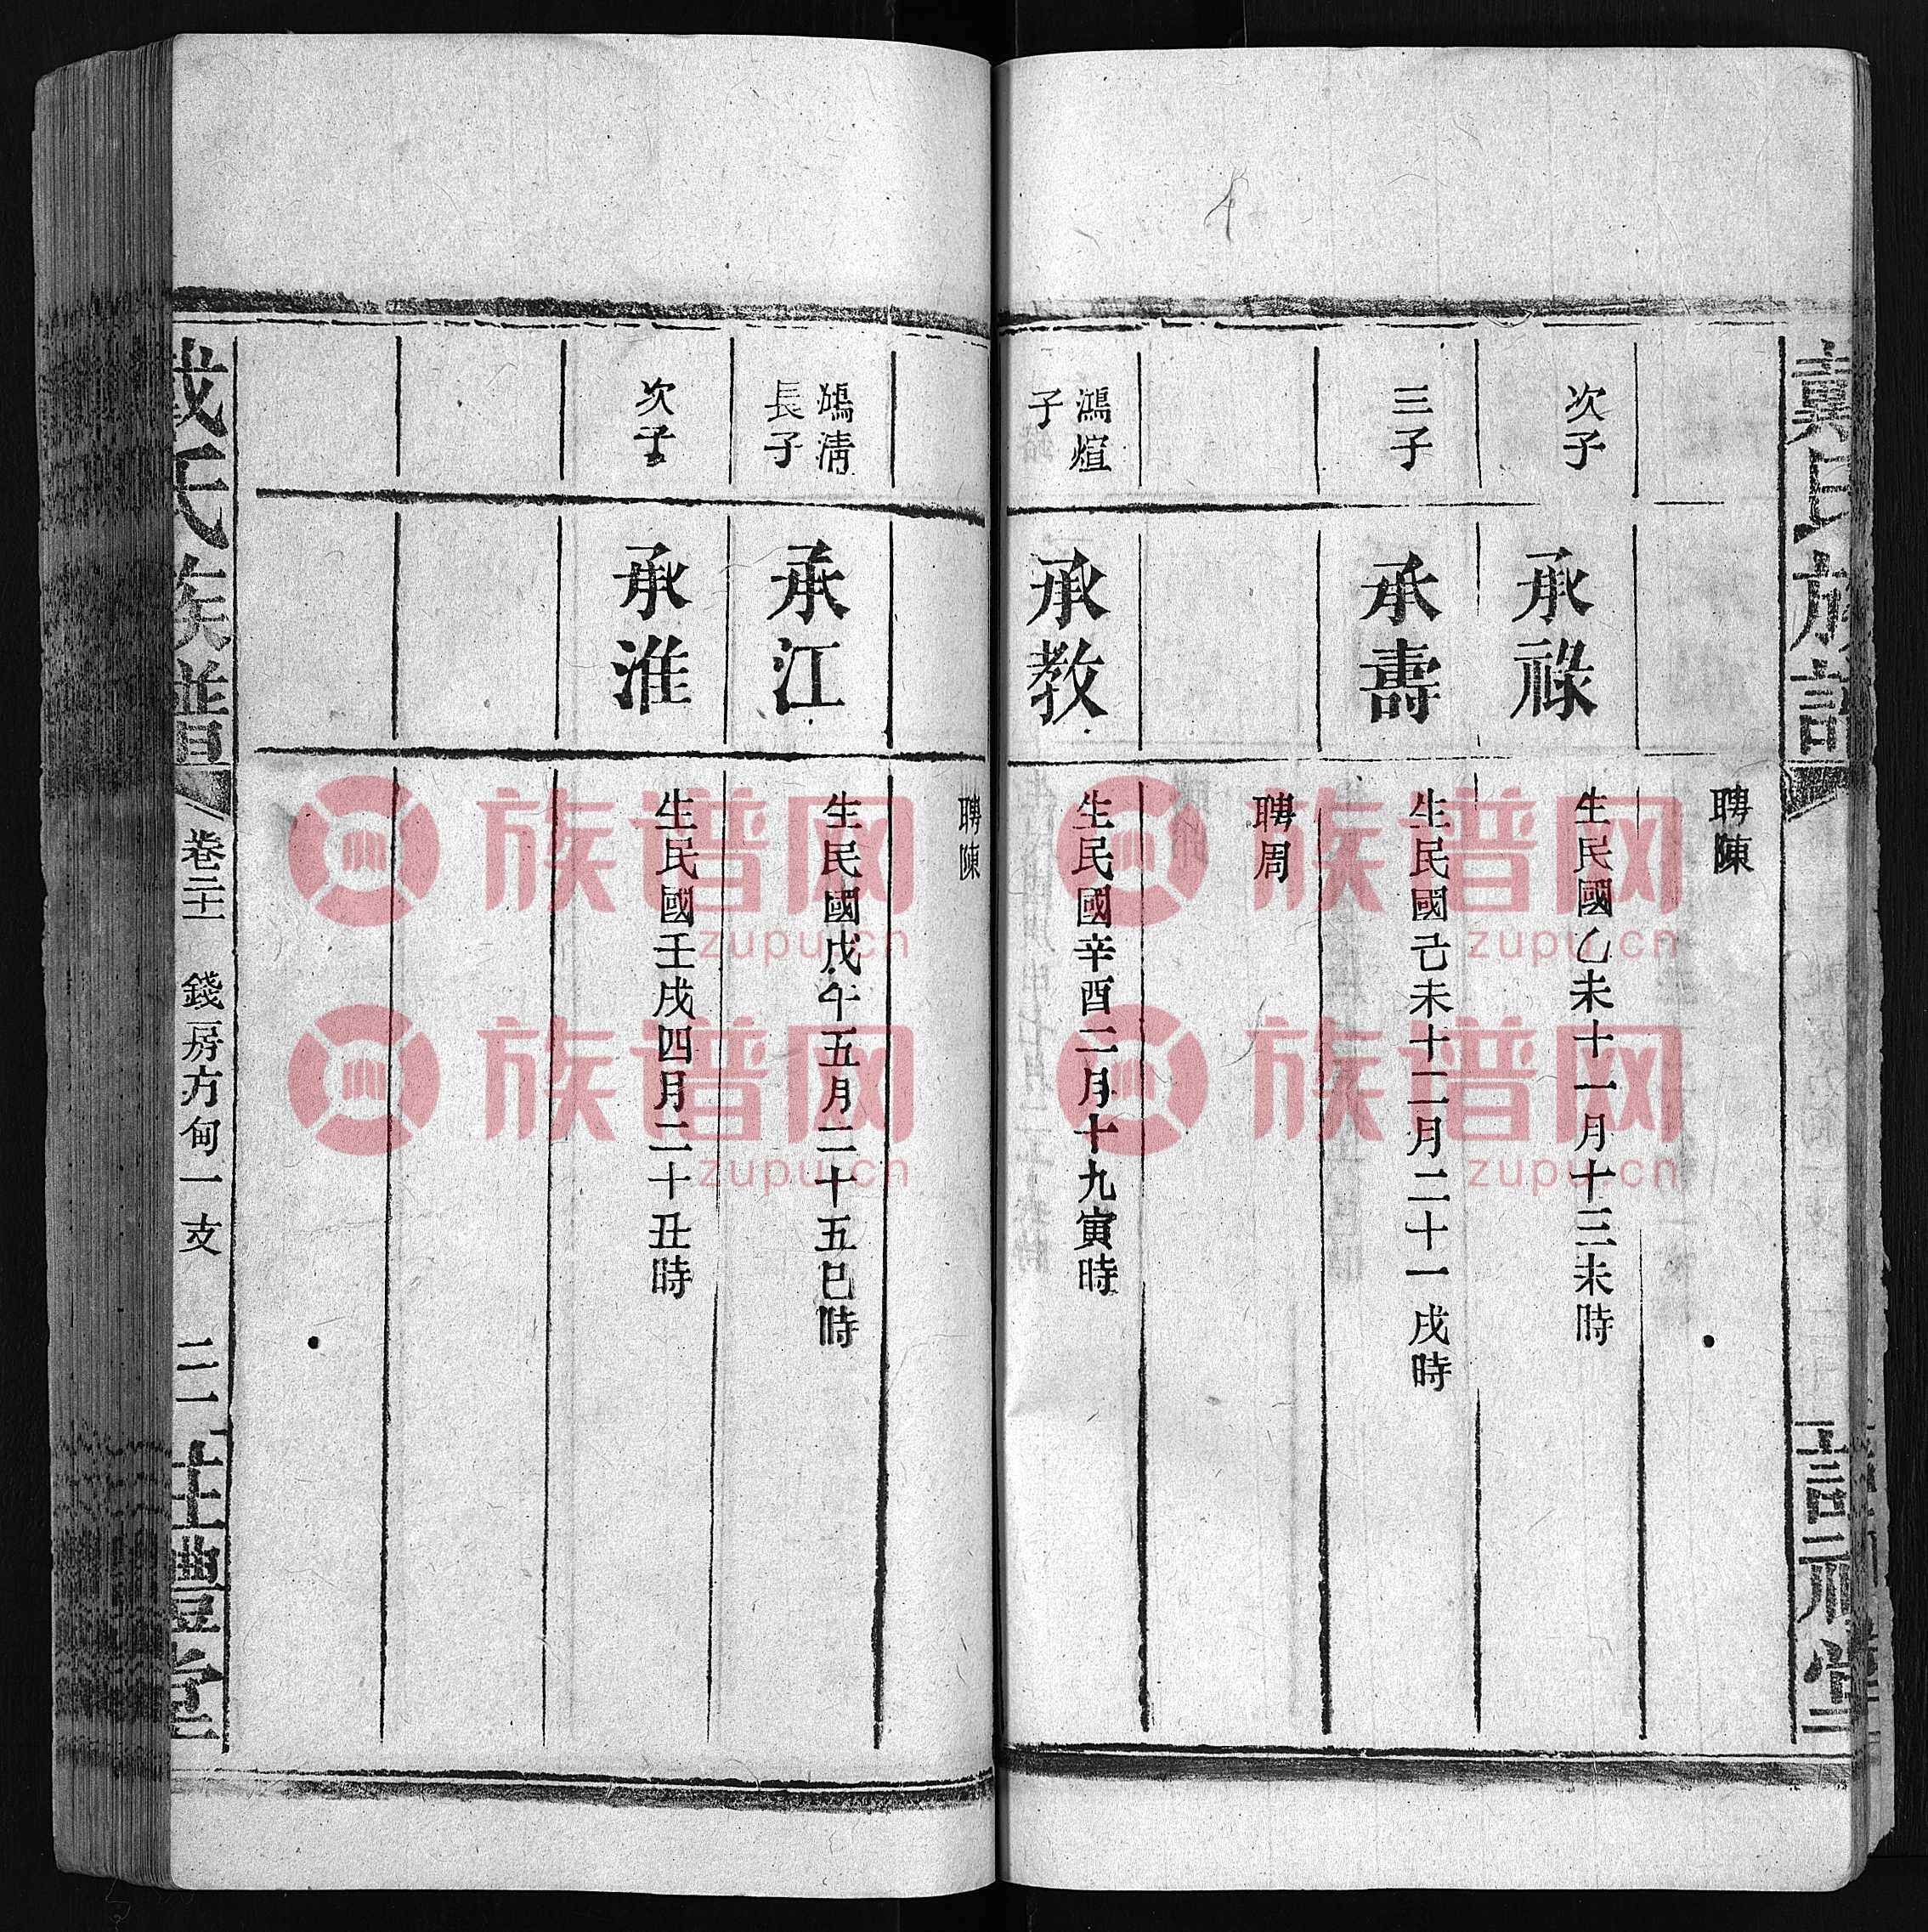 戴氏族譜
聘陳
次子
承祿
生民國乙未十一月十三未時
三子
承壽
生民國己未十二月二十一戌時
聘周
鴻煊
子
承教
生民國辛酉二月十九寅時
聘陳
鴻清
長子
承江
生民國戊午五月二十五巳時
次子
承淮
生民國壬戌四月二十丑時
戴氏族譜
卷二十一
錢房方甸一支
二一
注禮堂
族谱网
zupu.cn
族谱网
zupu.cn
族谱网
zupu.cn
族谱网
zupu.cn